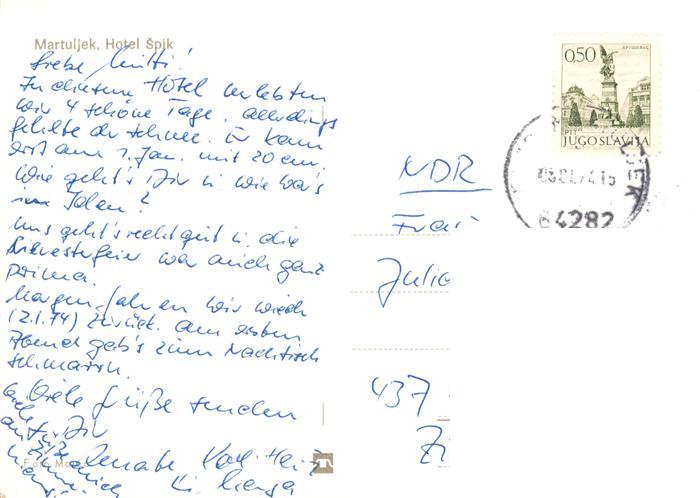 Martuljek, Hotel Špik
Liebe Mutti!
In diesem Hotel verlebten
wir 4 schöne Tage, allerdings
fehlte der Schnee. Er kam
erst am 1. Jan. mit 20 cm.
Wie geht's Dir u. wie war's
im
Uns geht's recht gut u. die
Silvesterfeier war auch ganz
prima.
Morgen fahren wir wieder
(2.1.74) zurück. Am ersten
Abend gab's zum Nachtisch
Schmarrn.
Viele Grüße senden
Dir
Renate Karl-Heinz
u.
Foto
0,50
PTT
JUGOSLAVIJA
64282
NDR
Frau
Julia
437